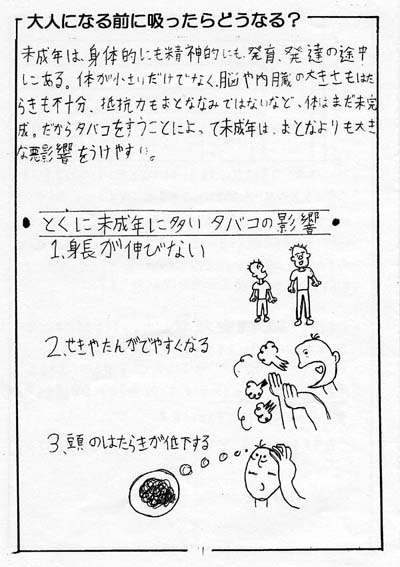 大人になる前に吸ったらどうなる？
未成年は、身体的にも精神的にも、発育、発達の途中
にある。体が小さいだけでなく、脳や内臓の大きさもはた
らきも不十分、抵抗力もおとななみではないなど、体はまだ未完
成。だからタバコをすうことによって未成年は、おとなよりも大き
な悪影響をうけやすい。
とくに未成年に多いタバコの影響
1、身長が伸びない
2、せきやたんがでやすくなる
3、頭のはたらきが低下する